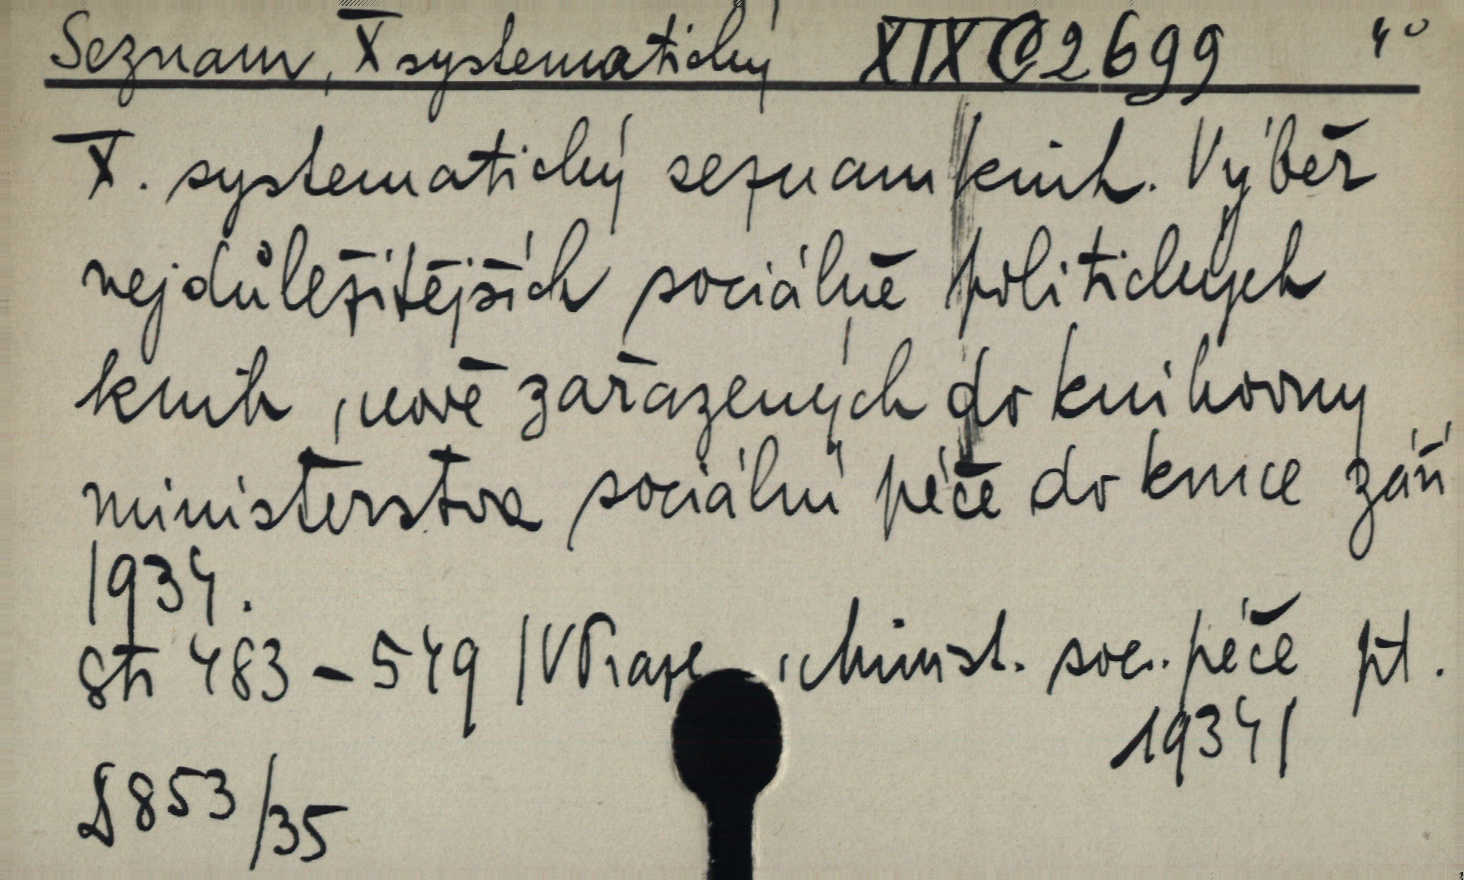 Seznam, X systematický XIX C 2699 4°
X. systematický seznam knih. Výběr
nejdůležitějších sociálně politických
knih, nově zařazených do knihovny
ministerstva sociální péče do konce září
1934.
Str 483 - 549 /V Praze, Minist. soc. péče
1934/
D 853/35